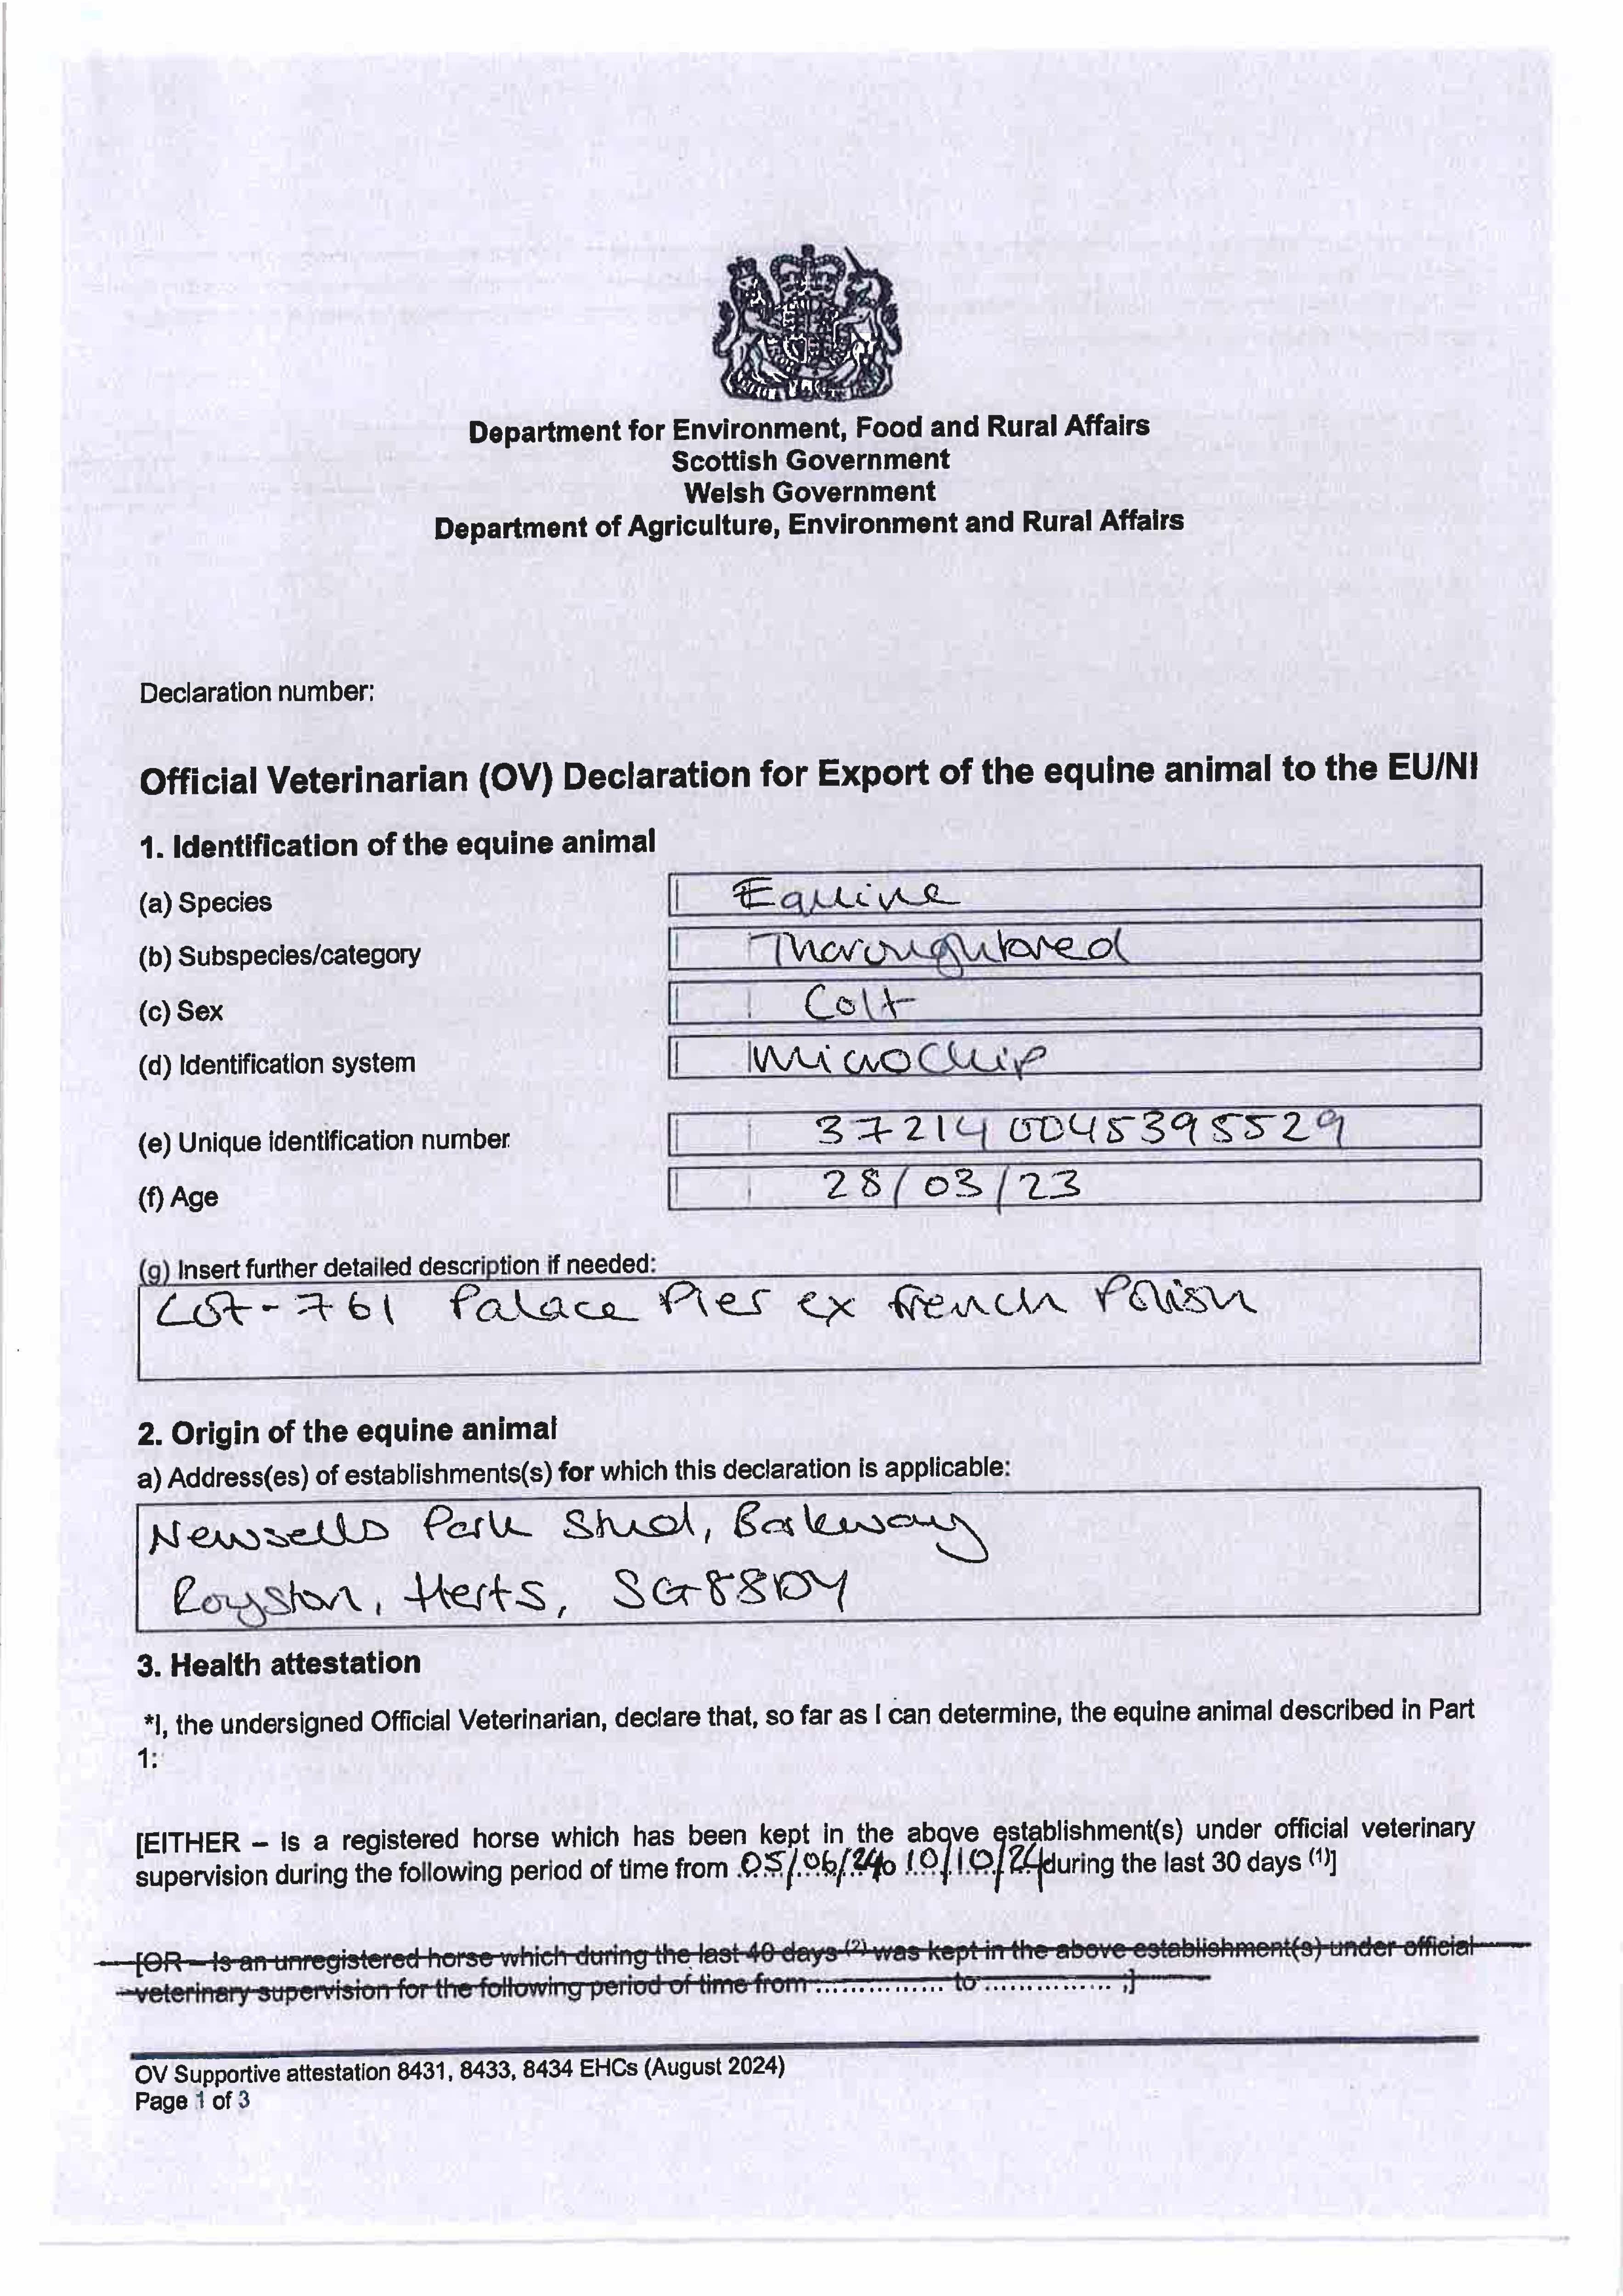 Department for Environment, Food and Rural Affairs
Scottish Government
Welsh Government
Department of Agriculture, Environment and Rural Affairs
Declaration number:
Official Veterinarian (OV) Declaration for Export of the equine animal to the EU/NI
1. Identification of the equine animal
(a) Species Equine
(b) Subspecies/category Thoroughbred
(c) Sex Colt
(d) Identification system Microchip
(e) Unique identification number 372140045395529
(f) Age 28/03/23
(g) Insert further detailed description if needed:
Lot-761 Palace Pier ex French Polish
2. Origin of the equine animal
a) Address(es) of establishments(s) for which this declaration is applicable:
Newsells Park Stud, Barkway
Royston, Herts, SG88DY
3. Health attestation
*I, the undersigned Official Veterinarian, declare that, so far as I can determine, the equine animal described in Part
1:
[EITHER – Is a registered horse which has been kept in the above establishment(s) under official veterinary
supervision during the following period of time from 05/06/24 to 10/10/24 during the last 30 days (1)]
[OR – Is an unregistered horse which during the last 40 days (2) was kept in the above establishment(s) under official
veterinary supervision for the following period of time from ............... to ............... ;]
OV Supportive attestation 8431, 8433, 8434 EHCs (August 2024)
Page 1 of 3